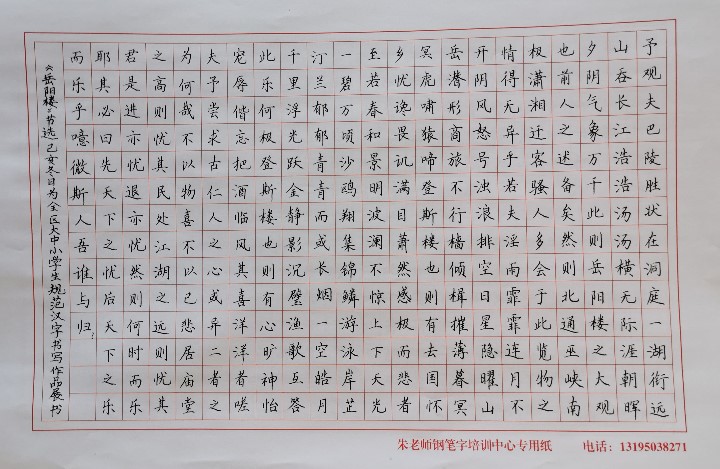 予观夫巴陵胜状在洞庭一湖衔远
山吞长江浩浩汤汤横无际涯朝晖
夕阴气象万千此则岳阳楼之大观
也前人之述备矣然则北通巫峡南
极潇湘迁客骚人多会于此览物之
情得无异乎若夫淫雨霏霏连月不
开阴风怒号浊浪排空日星隐曜山
岳潜形商旅不行樯倾楫摧薄暮冥
冥虎啸猿啼登斯楼也则有去国怀
乡忧谗畏讥满目萧然感极而悲者
至若春和景明波澜不惊上下天光
一碧万顷沙鸥翔集锦鳞游泳岸芷
汀兰郁郁青青而或长烟一空皓月
千里浮光跃金静影沉璧渔歌互答
此乐何极登斯楼也则有心旷神怡
宠辱偕忘把酒临风其喜洋洋者嗟
夫予尝求古仁人之心或异二者之
为何哉不以物喜不以己悲居庙堂
之高则忧其民处江湖之远则忧其
君是进亦忧退亦忧然则何时而乐
耶其必曰先天下之忧后天下之乐
而乐乎噫微斯人吾谁与归?
《岳阳楼》节选 己亥冬日为全区大中小学生规范汉字书写作品展书
朱老师钢笔字培训中心专用纸 电话:13195038271